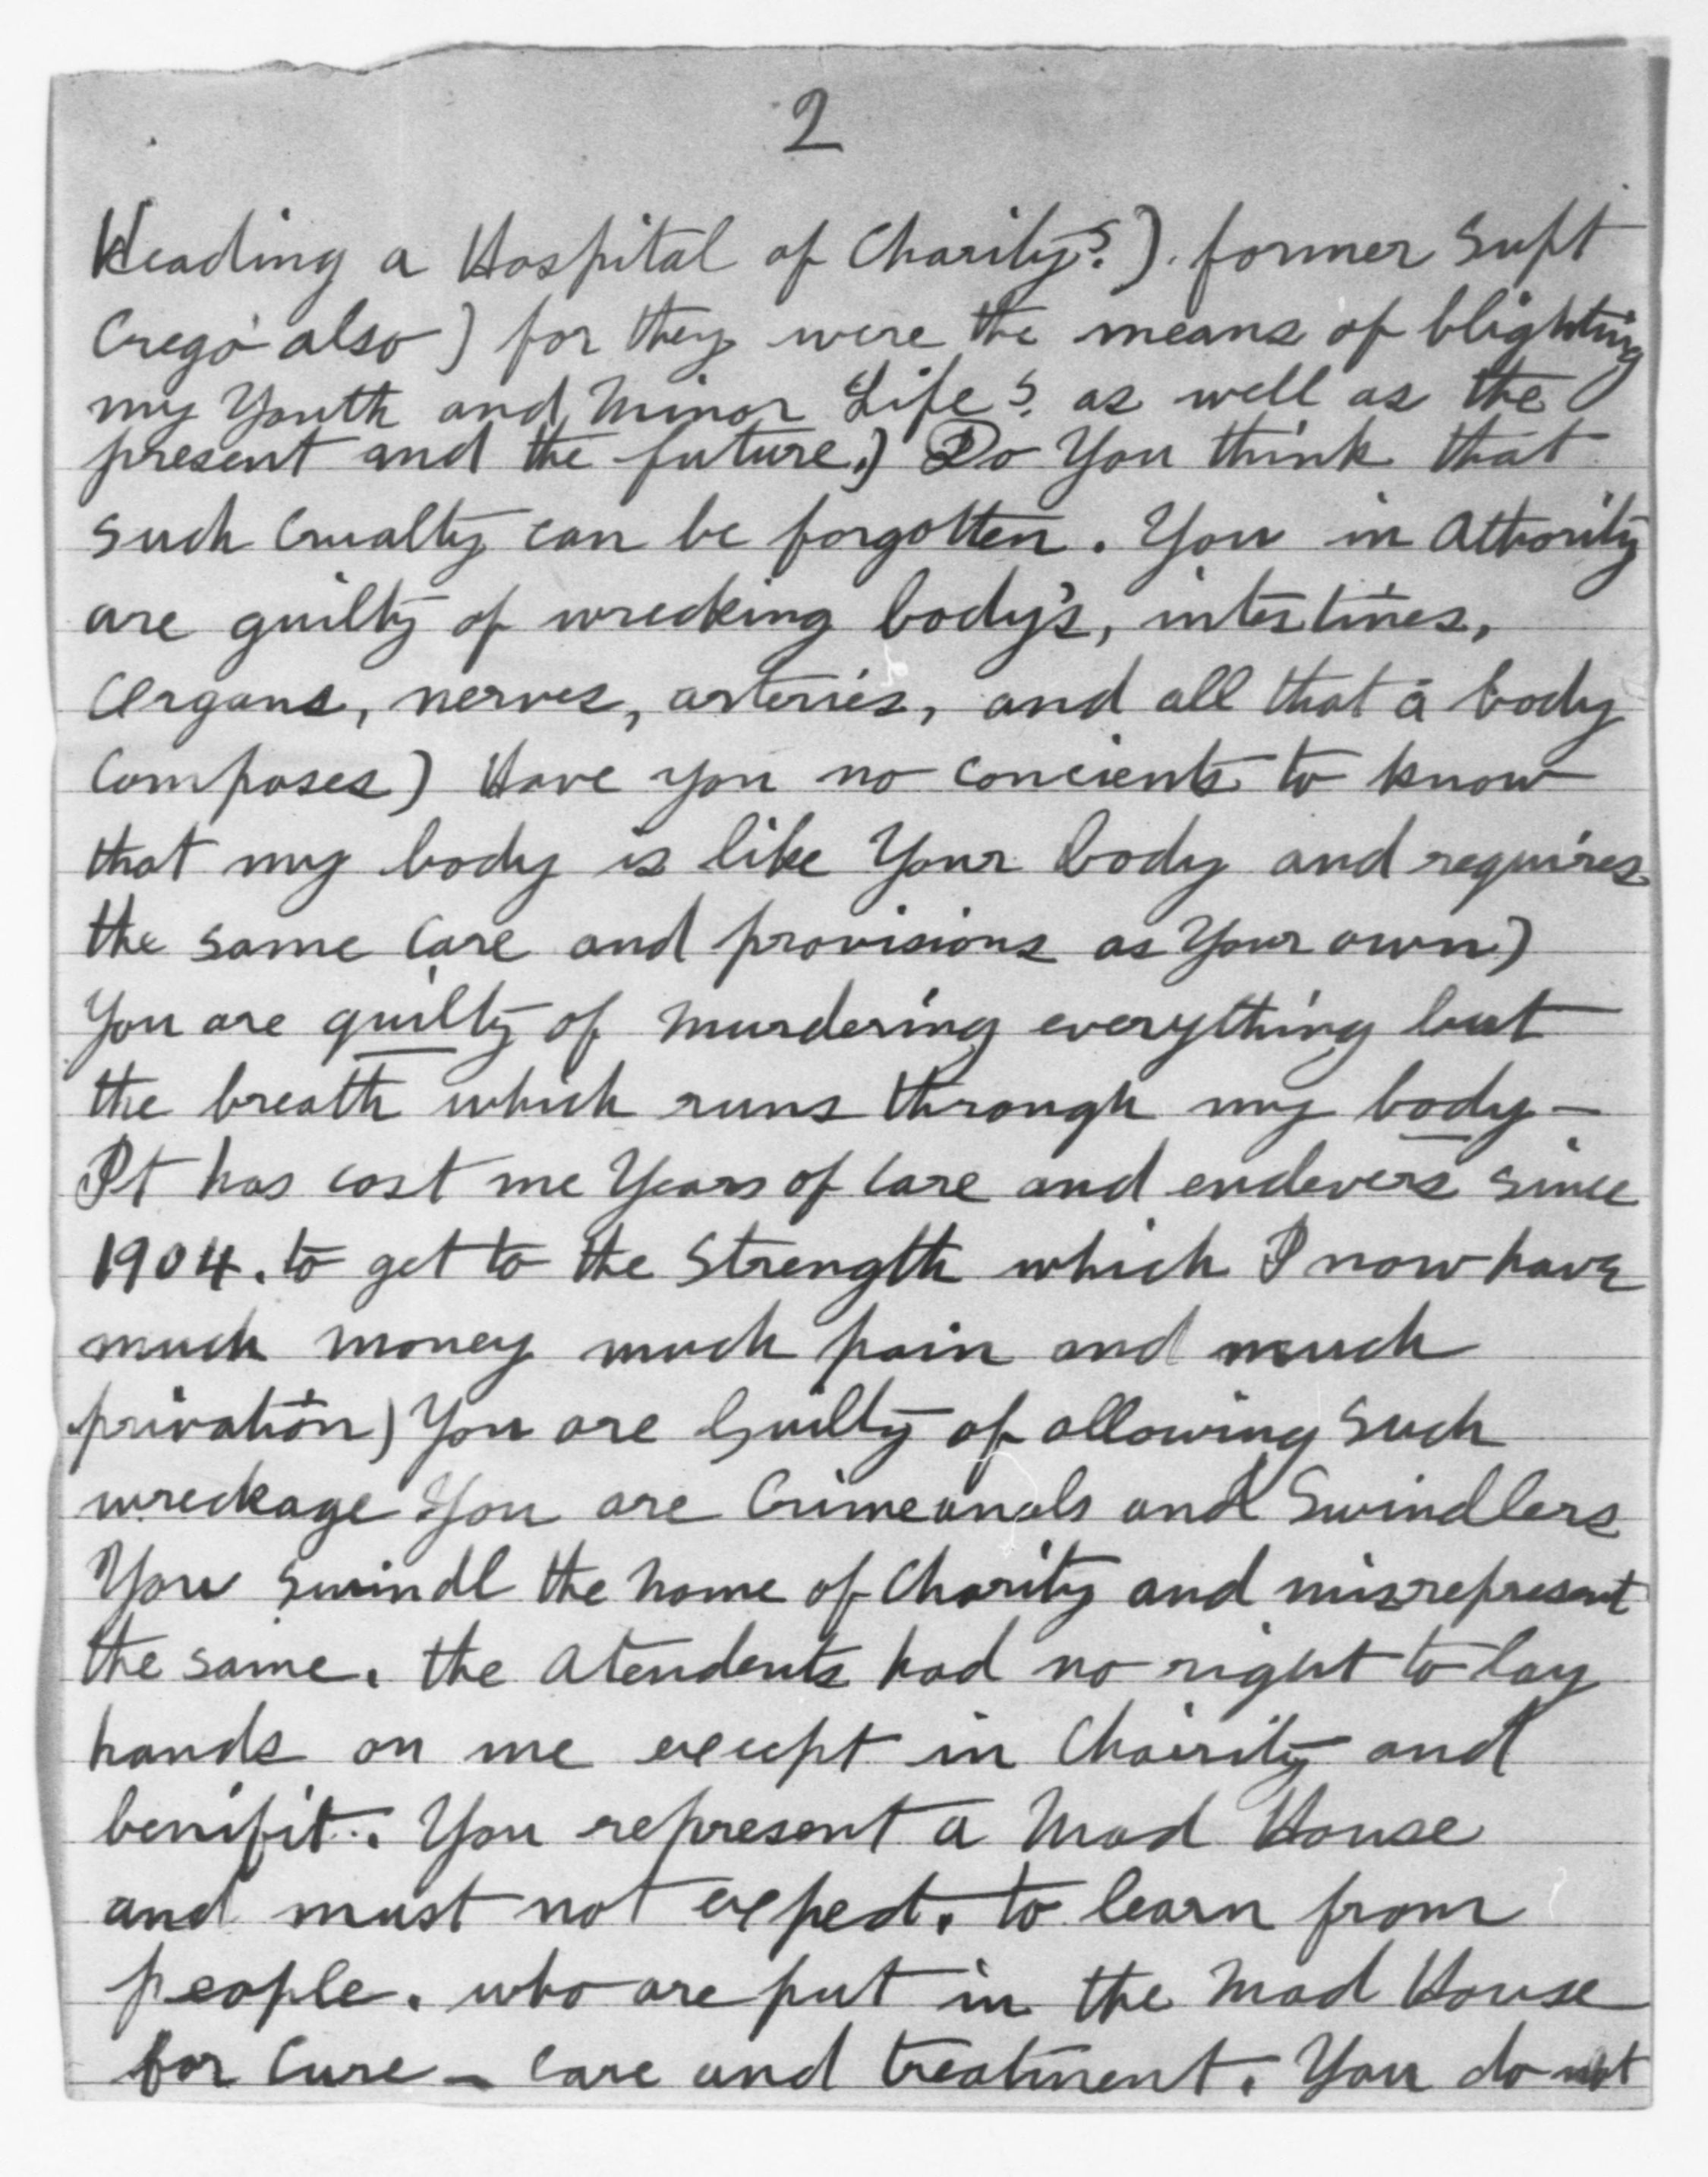 2
Heading a Hospital of Charity?). former Supt
Crego also) for they were the means of blighting
my Youth and Minor Life? as well as the
present and the future.) Do You think that
such Crualty can be forgotten. You in Athority
are guilty of wrecking body's, intestines,
Organs, nerves, arteries, and all that a body
Composes) Have you no concients to know
that my body is like Your body and requires
the same Care and provisions as Your own)
You are guilty of murdering everything but
the breath which runs through my body –
It has cost me Years of Care and endevers since
1904. to get to the Strength which I now have
much money much pain and much
privation) You are Guilty of allowing Such
wreckage You are Crimeanals and Swindlers
You swindl the home of Charity and misrepresent
the same. the Atendents had no right to lay
hands on me except in Chairity and
benifit. You represent a Mad House
and must not expect. to learn from
people. who are put in the Mad House
for Cure – Care and treatment. You do not